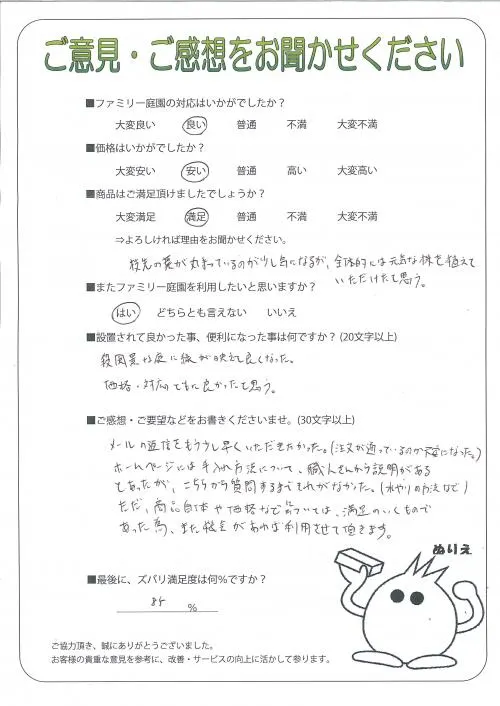 ご意見・ご感想をお聞かせください
■ファミリー庭園の対応はいかがでしたか？
大変良い 良い 普通 不満 大変不満
■価格はいかがでしたか？
大変安い 安い 普通 高い 大変高い
■商品はご満足頂けましたでしょうか？
大変満足 満足 普通 不満 大変不満
⇒よろしければ理由をお聞かせください。
枝先の葉が丸まっているのが少し気になるが、全体的には元気な株を植えて
いただけたと思う。
■またファミリー庭園を利用したいと思いますか？
はい どちらとも言えない いいえ
■設置されて良かった事、便利になった事は何ですか？(20文字以上)
殺風景な庭に緑が映えて良くなった。
価格・対応ともに良かったと思う。
■ご感想・ご要望などをお書きくださいませ。(30文字以上)
メールの返信をもう少し早くいただきたかった。(注文が通っているのか不安になった。)
ホームページには手入れ方法について、職人さんから説明がある
とあったが、こちらから質問するまでそれがなかった。(水やりの方法など)
ただ、商品自体や価格などについては、満足のいくもので
あった為、また機会があれば利用させて頂きます。
ぬりえ
■最後に、ズバリ満足度は何％ですか？
85 %
ご協力頂き、誠にありがとうございました。
お客様の貴重な意見を参考に、改善・サービスの向上に活かして参ります。